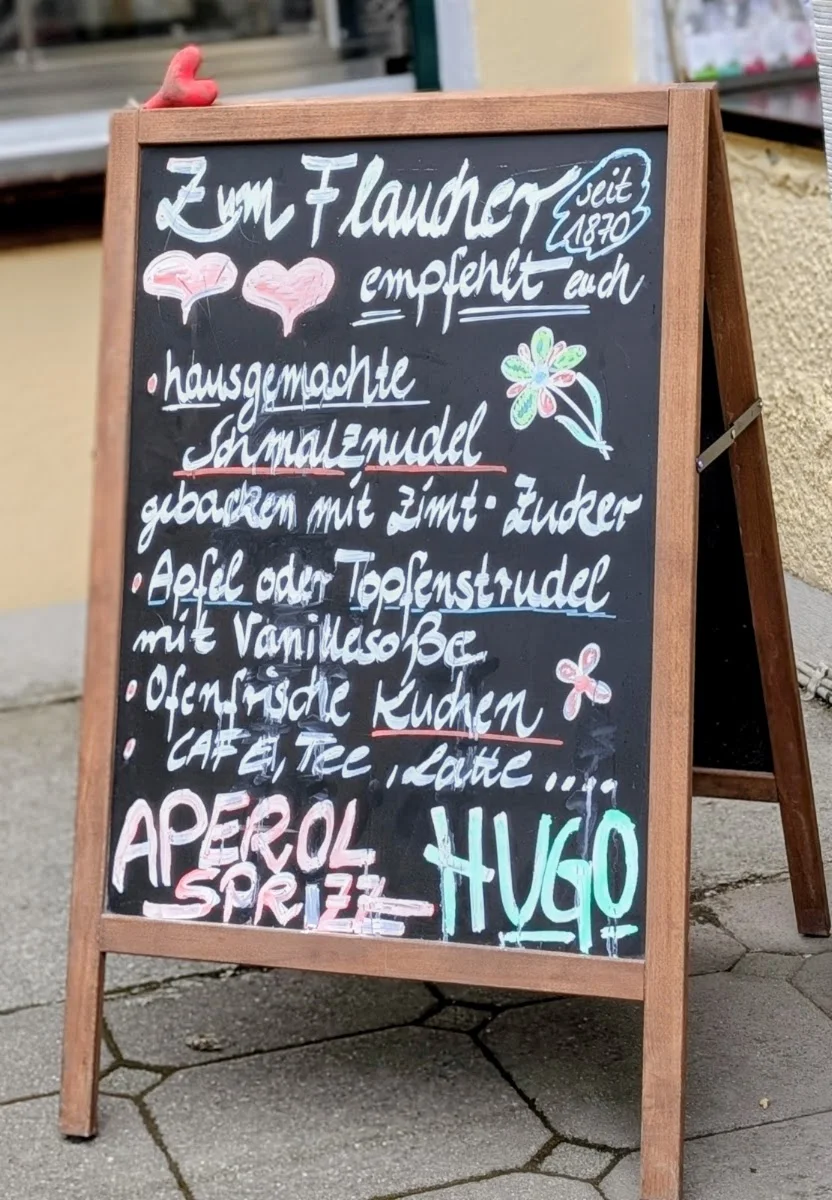 Zum Flaucher
seit
1870
empfehlt euch
• hausgemachte
Schmalznudel
gebacken mit Zimt • Zucker
• Apfel oder Topfenstrudel
mit Vanillesoße
• Ofenfrische Kuchen
• CAFE, Tee, Latte ....
APEROL
SPRIZZ
HUGO